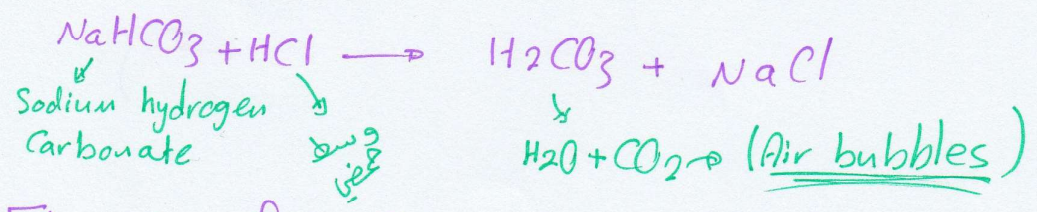 NaHCO3 + HCl → H2CO3 + NaCl
Sodium hydrogen
Carbonate
وسط
حمضي
H2O + CO2 → (Air bubbles)